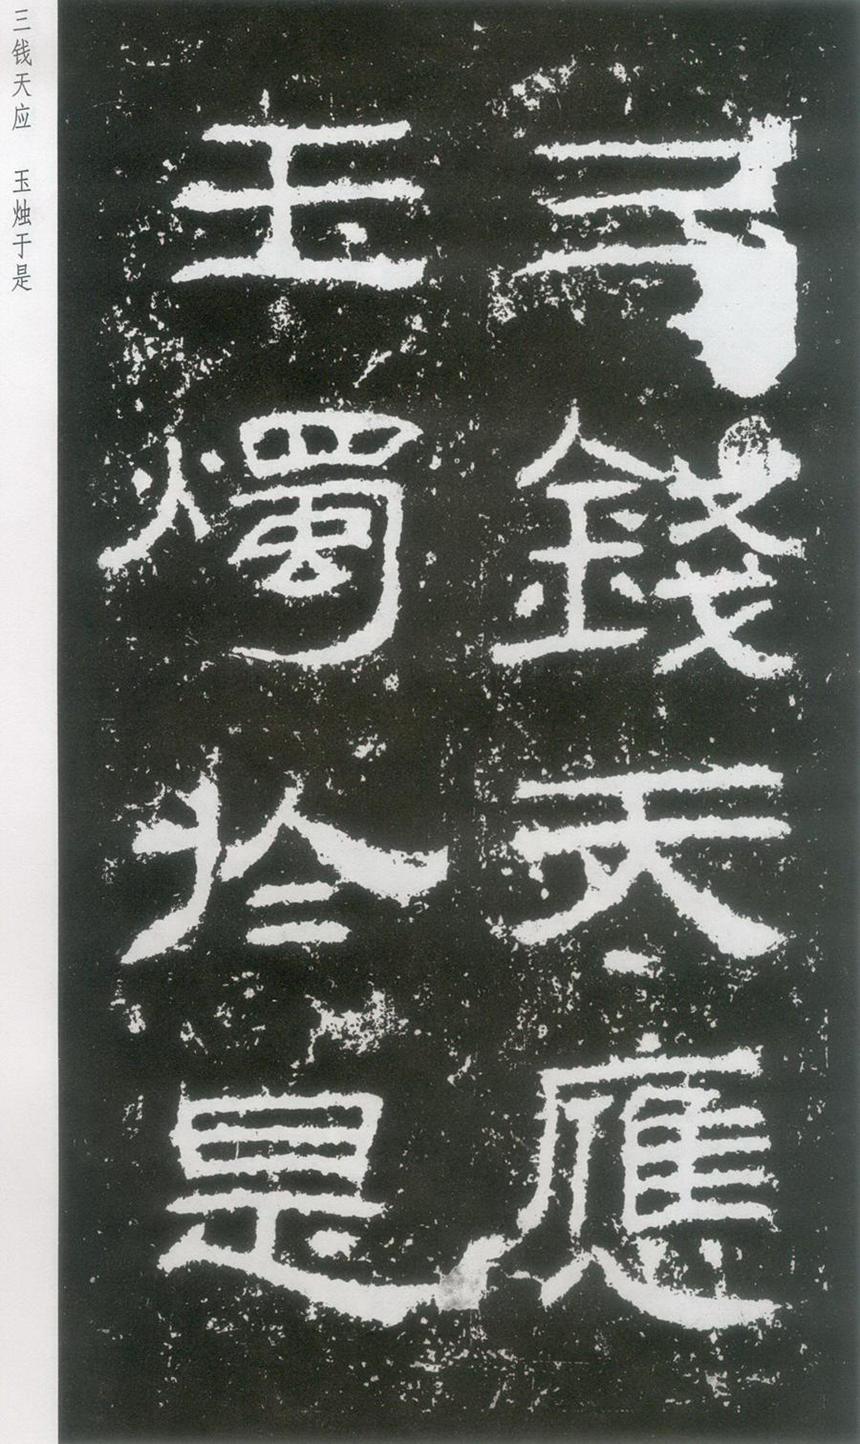 三錢天應
玉燭於是
三钱天应 玉烛于是